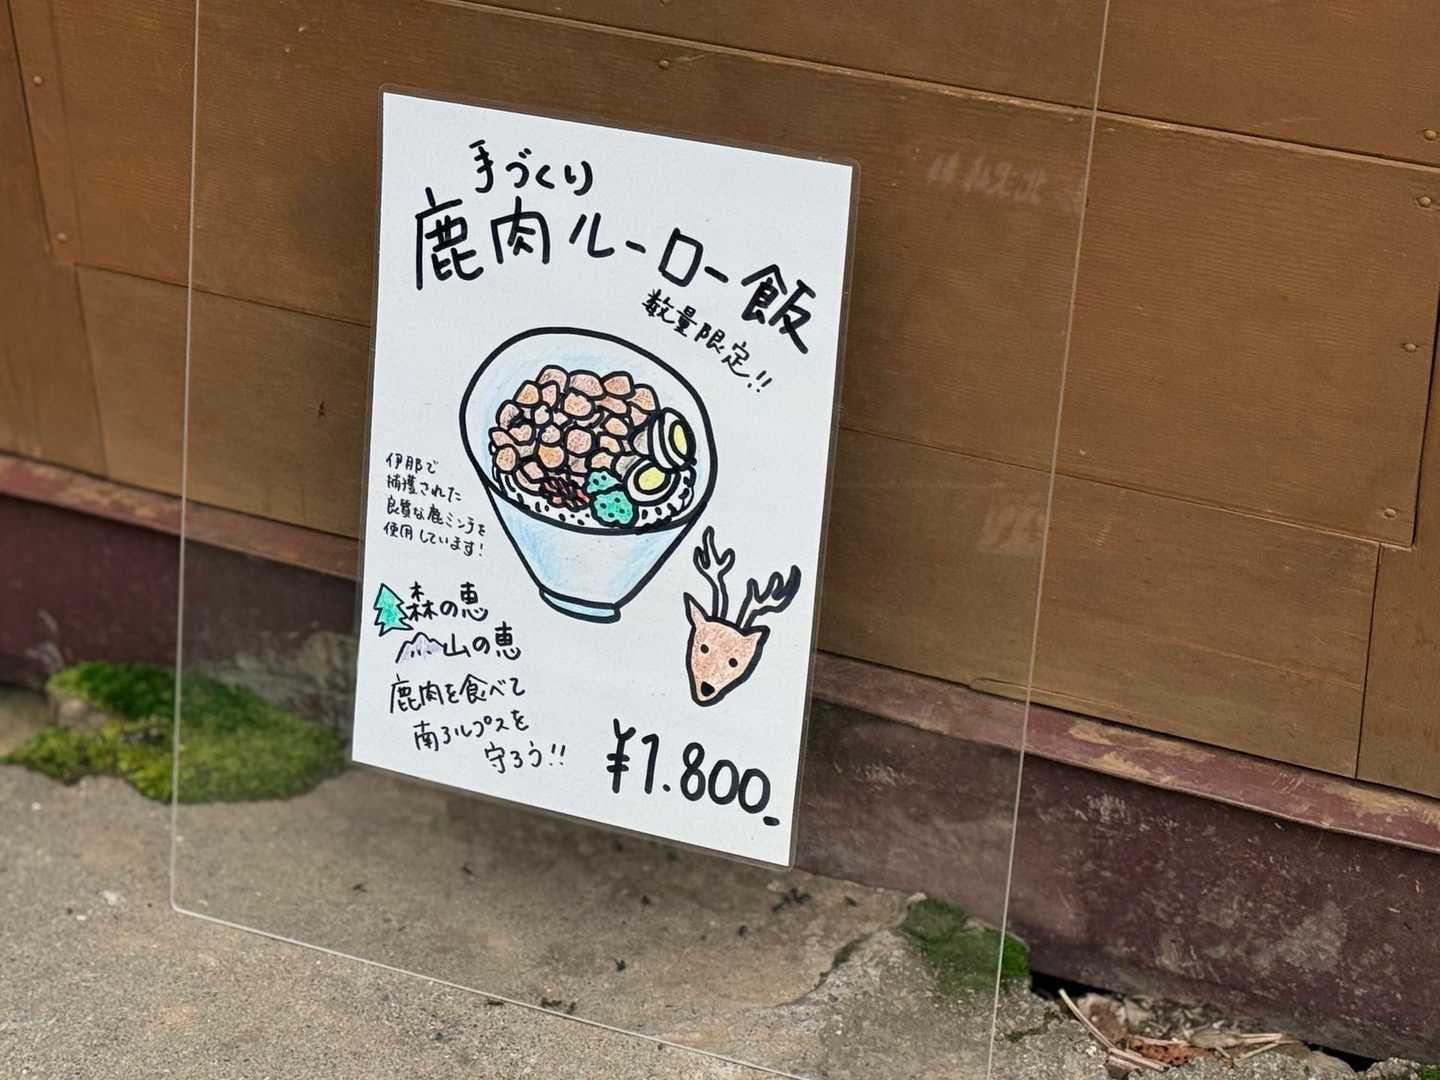 手づくり
鹿肉ルーロー飯
数量限定!!
伊那で
捕獲された
良質な鹿ミンチを
使用しています!
森の恵
山の恵
鹿肉を食べて
南アルプスを
守ろう!!
¥1.800-